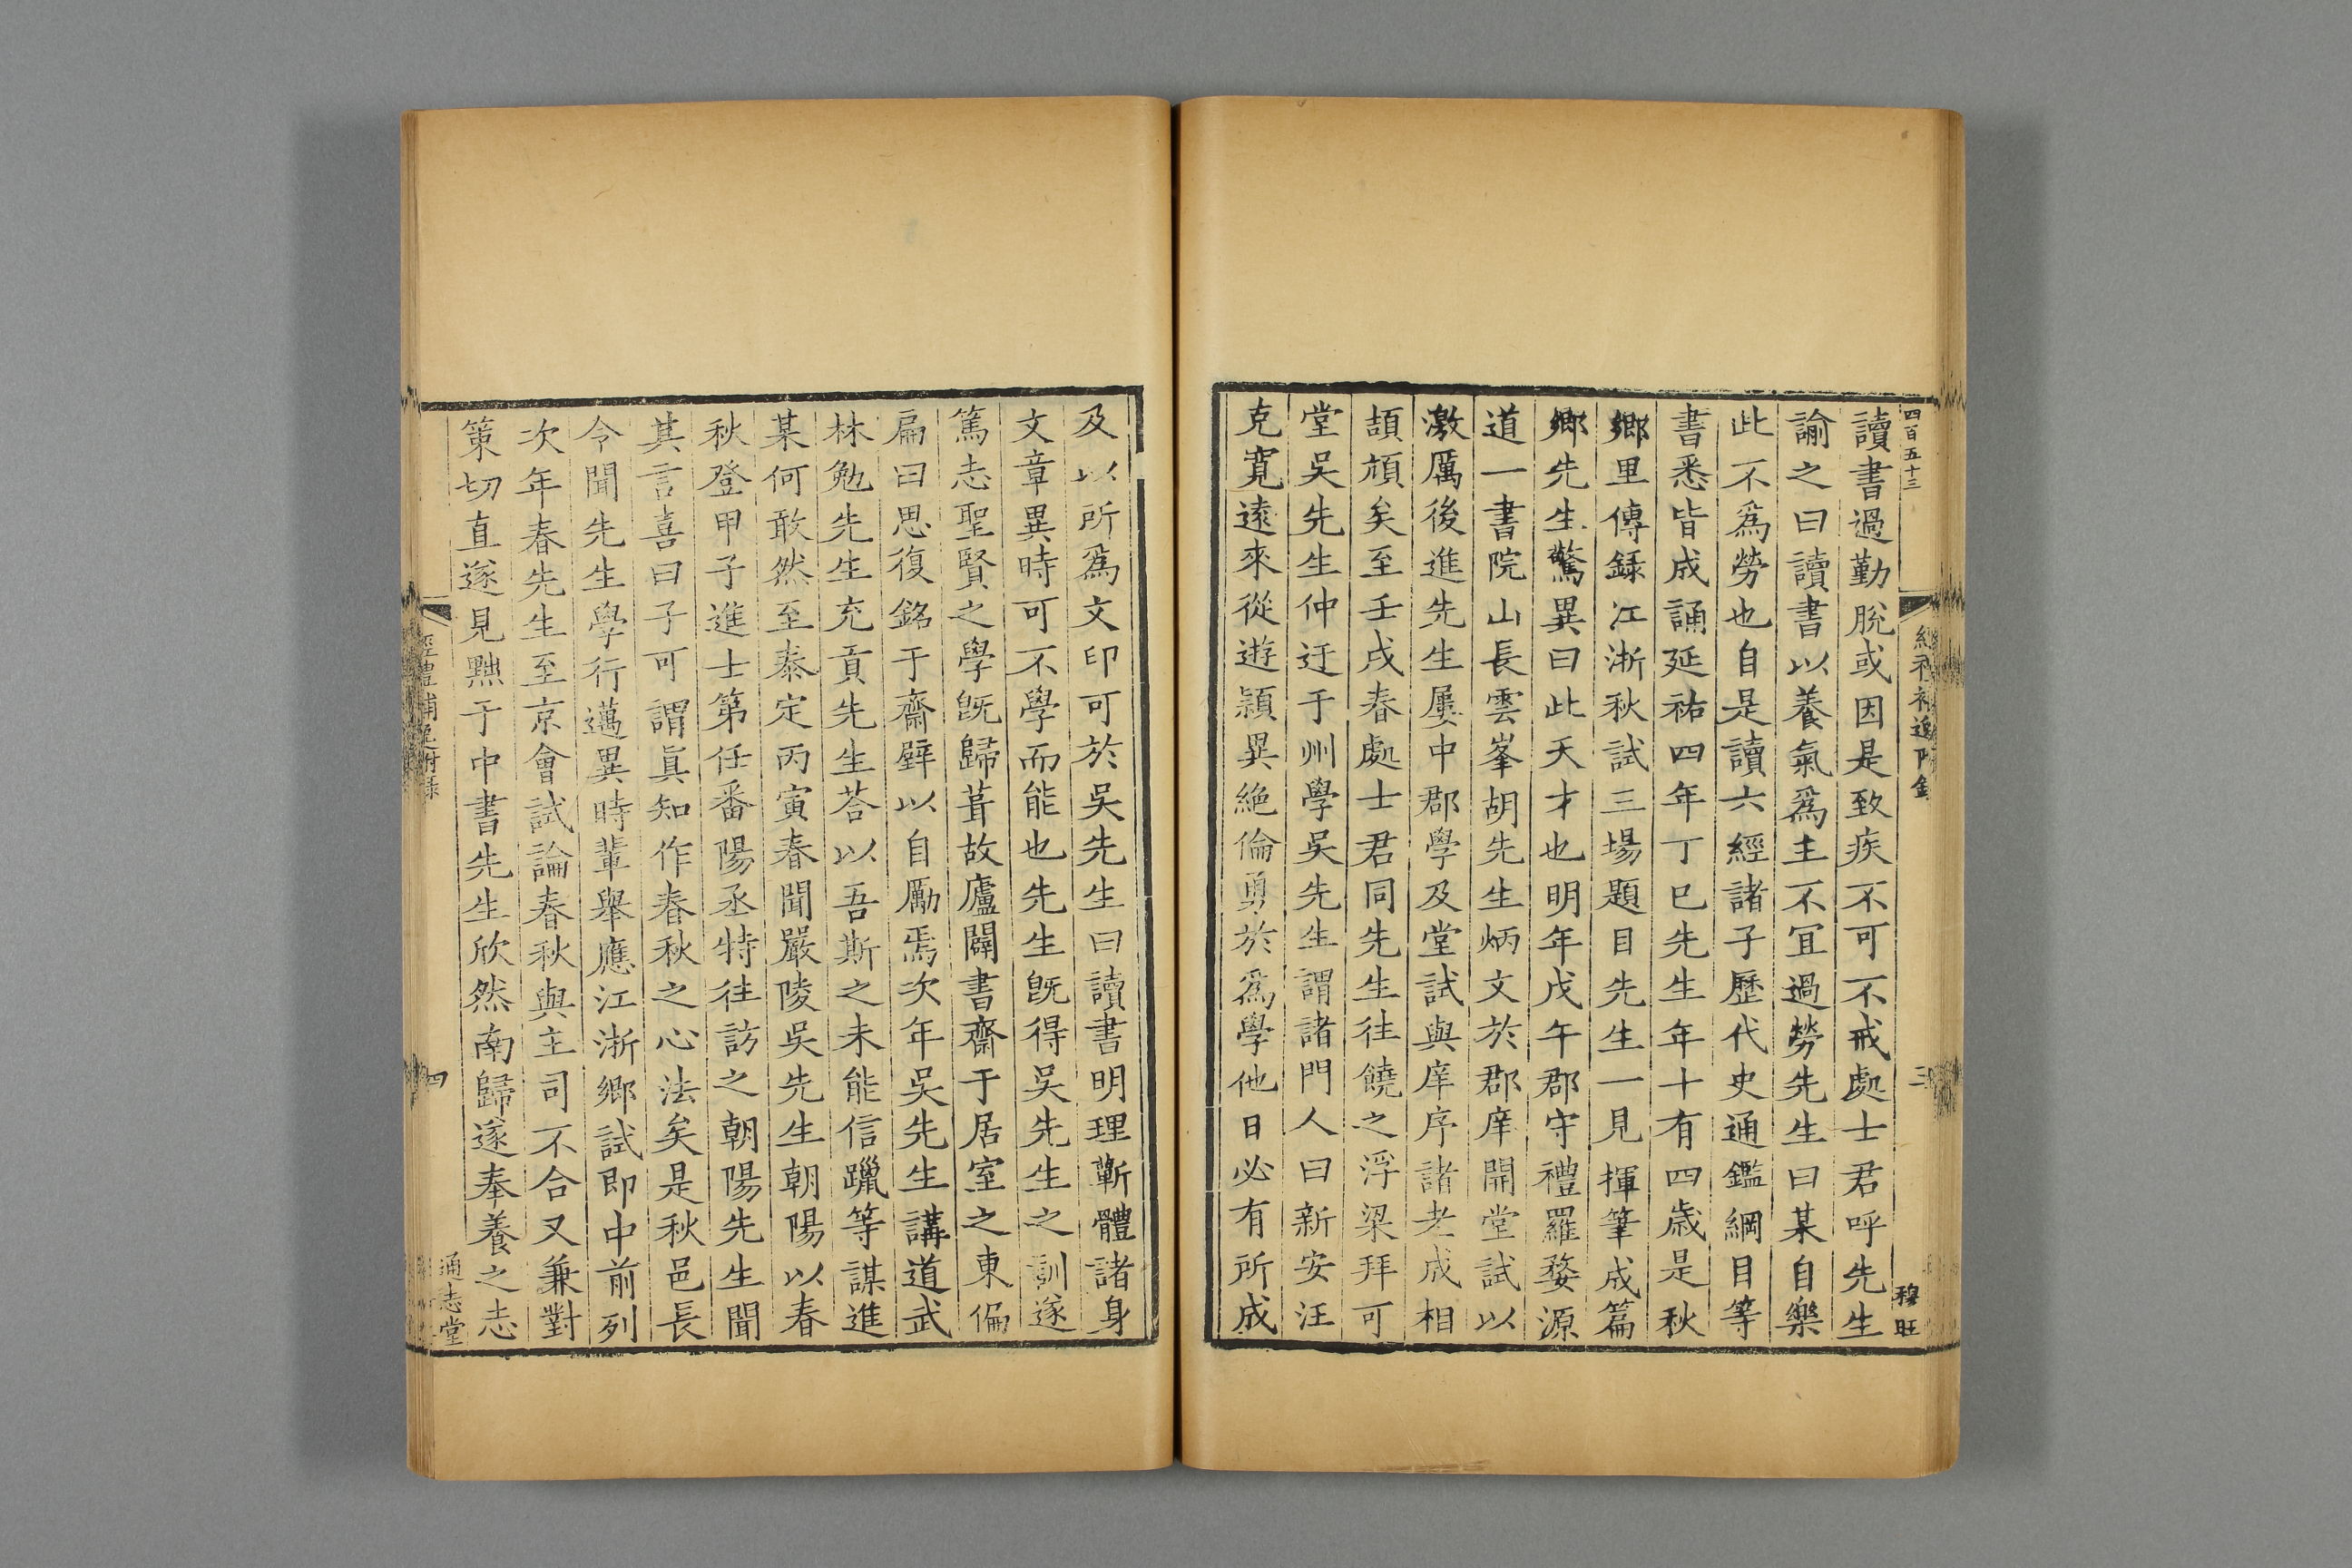 四百五十三
讀書過勤脫或因是致疾不可不戒處士君呼先生
諭之曰讀書以養氣爲主不冝過勞先生曰某自樂
此不爲勞也自是讀六經諸子歷代史通鑑綱目等
書悉皆成誦延祐四年丁巳先生年十有四歲是秋
鄉里傳録江浙秋試三場題目先生一見揮筆成篇
鄉先生驚異曰此天才也明年戊午郡守禮羅婺源
道一書院山長雲峯胡先生炳文於郡庠開堂試以
激厲後進先生屢中郡學及堂試與庠序諸老成相
頡頏矣至壬戌春處士君同先生往饒之浮梁拜可
堂吳先生仲迂于州學吳先生謂諸門人曰新安汪
克寬遠來從遊穎異絶倫勇於爲學他日必有所成
三
穆旺
及以所爲文印可於吳先生曰讀書明理蘄體諸身
文章異時可不學而能也先生旣得吳先生之訓遂
篤志聖賢之學旣歸葺故廬闢書齋于居室之東偏
扁曰思復銘于齋壁以自勵焉次年吳先生講道武
林勉先生充貢先生荅以吾斯之未能信躐等謀進
某何敢然至泰定丙寅春聞嚴陵吳先生朝陽以春
秋登甲子進士第任番陽丞特往訪之朝陽先生聞
其言喜曰子可謂眞知作春秋之心法矣是秋邑長
令聞先生學行邁異時輩舉應江浙鄉試即中前列
次年春先生至京會試論春秋與主司不合又兼對
策切直遂見黜于中書先生欣然南歸遂奉養之志
經禮補逸附錄
四
通志堂